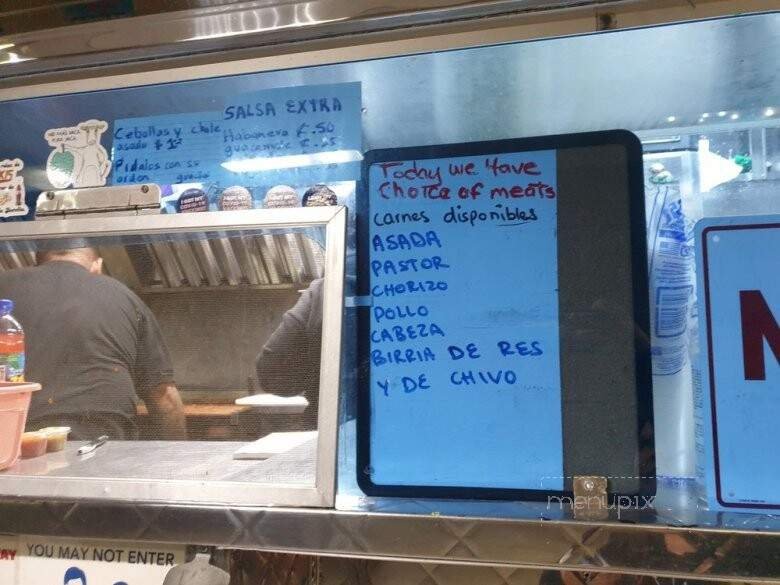 SALSA EXTRA
Cebollas y chile
asado $
Habanero ₡.50
guacamole
Pidalos con su
orden gratis
Today we Have
Choice of meats
carnes disponibles
ASADA
PASTOR
CHORIZO
POLLO
CABEZA
BIRRIA DE RES
Y DE CHIVO
N
menupix
YOU MAY NOT ENTER